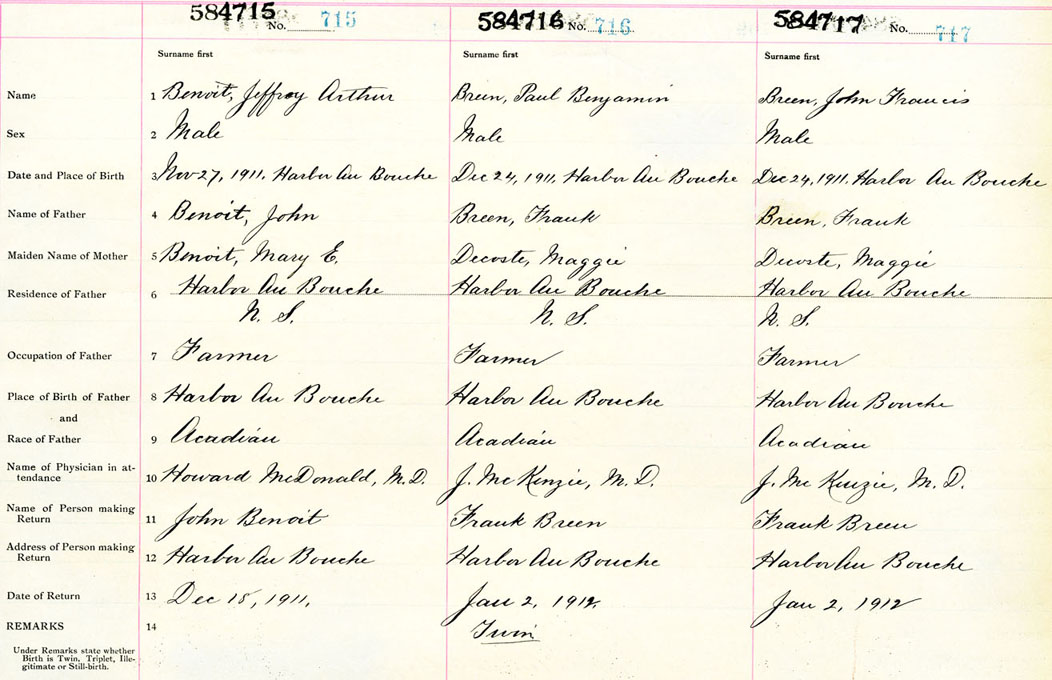 584715 No. 715 584716 No. 716 584717 No. 717
Surname first Surname first Surname first
Name 1 Benoit, Jeffroy Arthur Breen, Paul Benjamin Breen, John Francis
Sex 2 Male Male Male
Date and Place of Birth 3 Nov 27, 1911, Harbor Au Bouche Dec 24, 1911, Harbor Au Bouche Dec 24, 1911, Harbor Au Bouche
Name of Father 4 Benoit, John Breen, Frank Breen, Frank
Maiden Name of Mother 5 Benoit, Mary E. Decoste, Maggie Decoste, Maggie
Residence of Father 6 Harbor Au Bouche Harbor Au Bouche Harbor Au Bouche
N. S. N. S. N. S.
Occupation of Father 7 Farmer Farmer Farmer
Place of Birth of Father 8 Harbor Au Bouche Harbor Au Bouche Harbor Au Bouche
and
Race of Father 9 Acadian Acadian Acadian
Name of Physician in at-
tendance 10 Howard McDonald, M.D. J. McKenzie, M.D. J. McKenzie, M.D.
Name of Person making
Return 11 John Benoit Frank Breen Frank Breen
Address of Person making
Return 12 Harbor Au Bouche Harbor Au Bouche Harbor Au Bouche
Date of Return 13 Dec 15, 1911, Jan 2, 1912 Jan 2, 1912
REMARKS 14 Twin
Under Remarks state whether
Birth is Twin, Triplet, Ille-
gitimate or Still-birth.